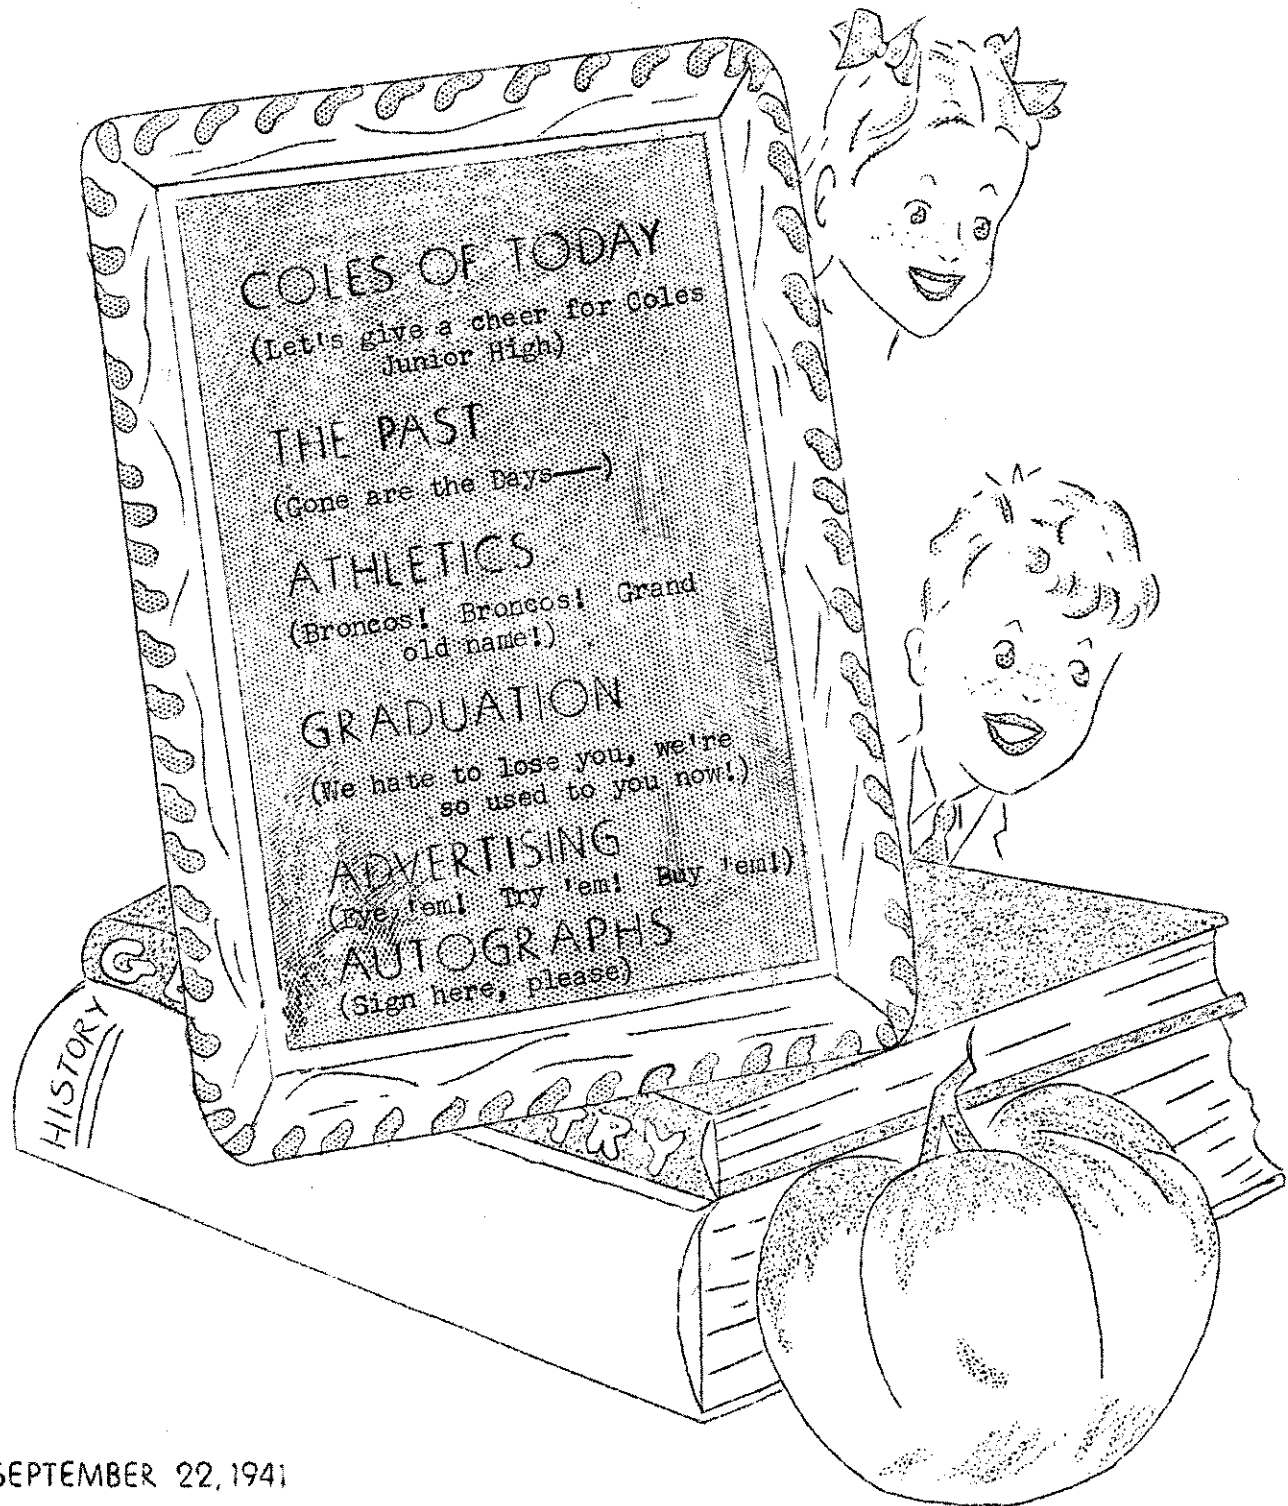 COLES OF TODAY
(Let's give a cheer for Coles
Junior High)
THE PAST
(Gone are the Days—)
ATHLETICS
(Broncos! Broncos! Grand
old name!)
GRADUATION
(We hate to lose you, we're
so used to you now!)
ADVERTISING
(Eye 'em! Try 'em! Buy 'em!)
AUTOGRAPHS
(Sign here, please)
G
HISTORY
TRY
SEPTEMBER 22, 1941